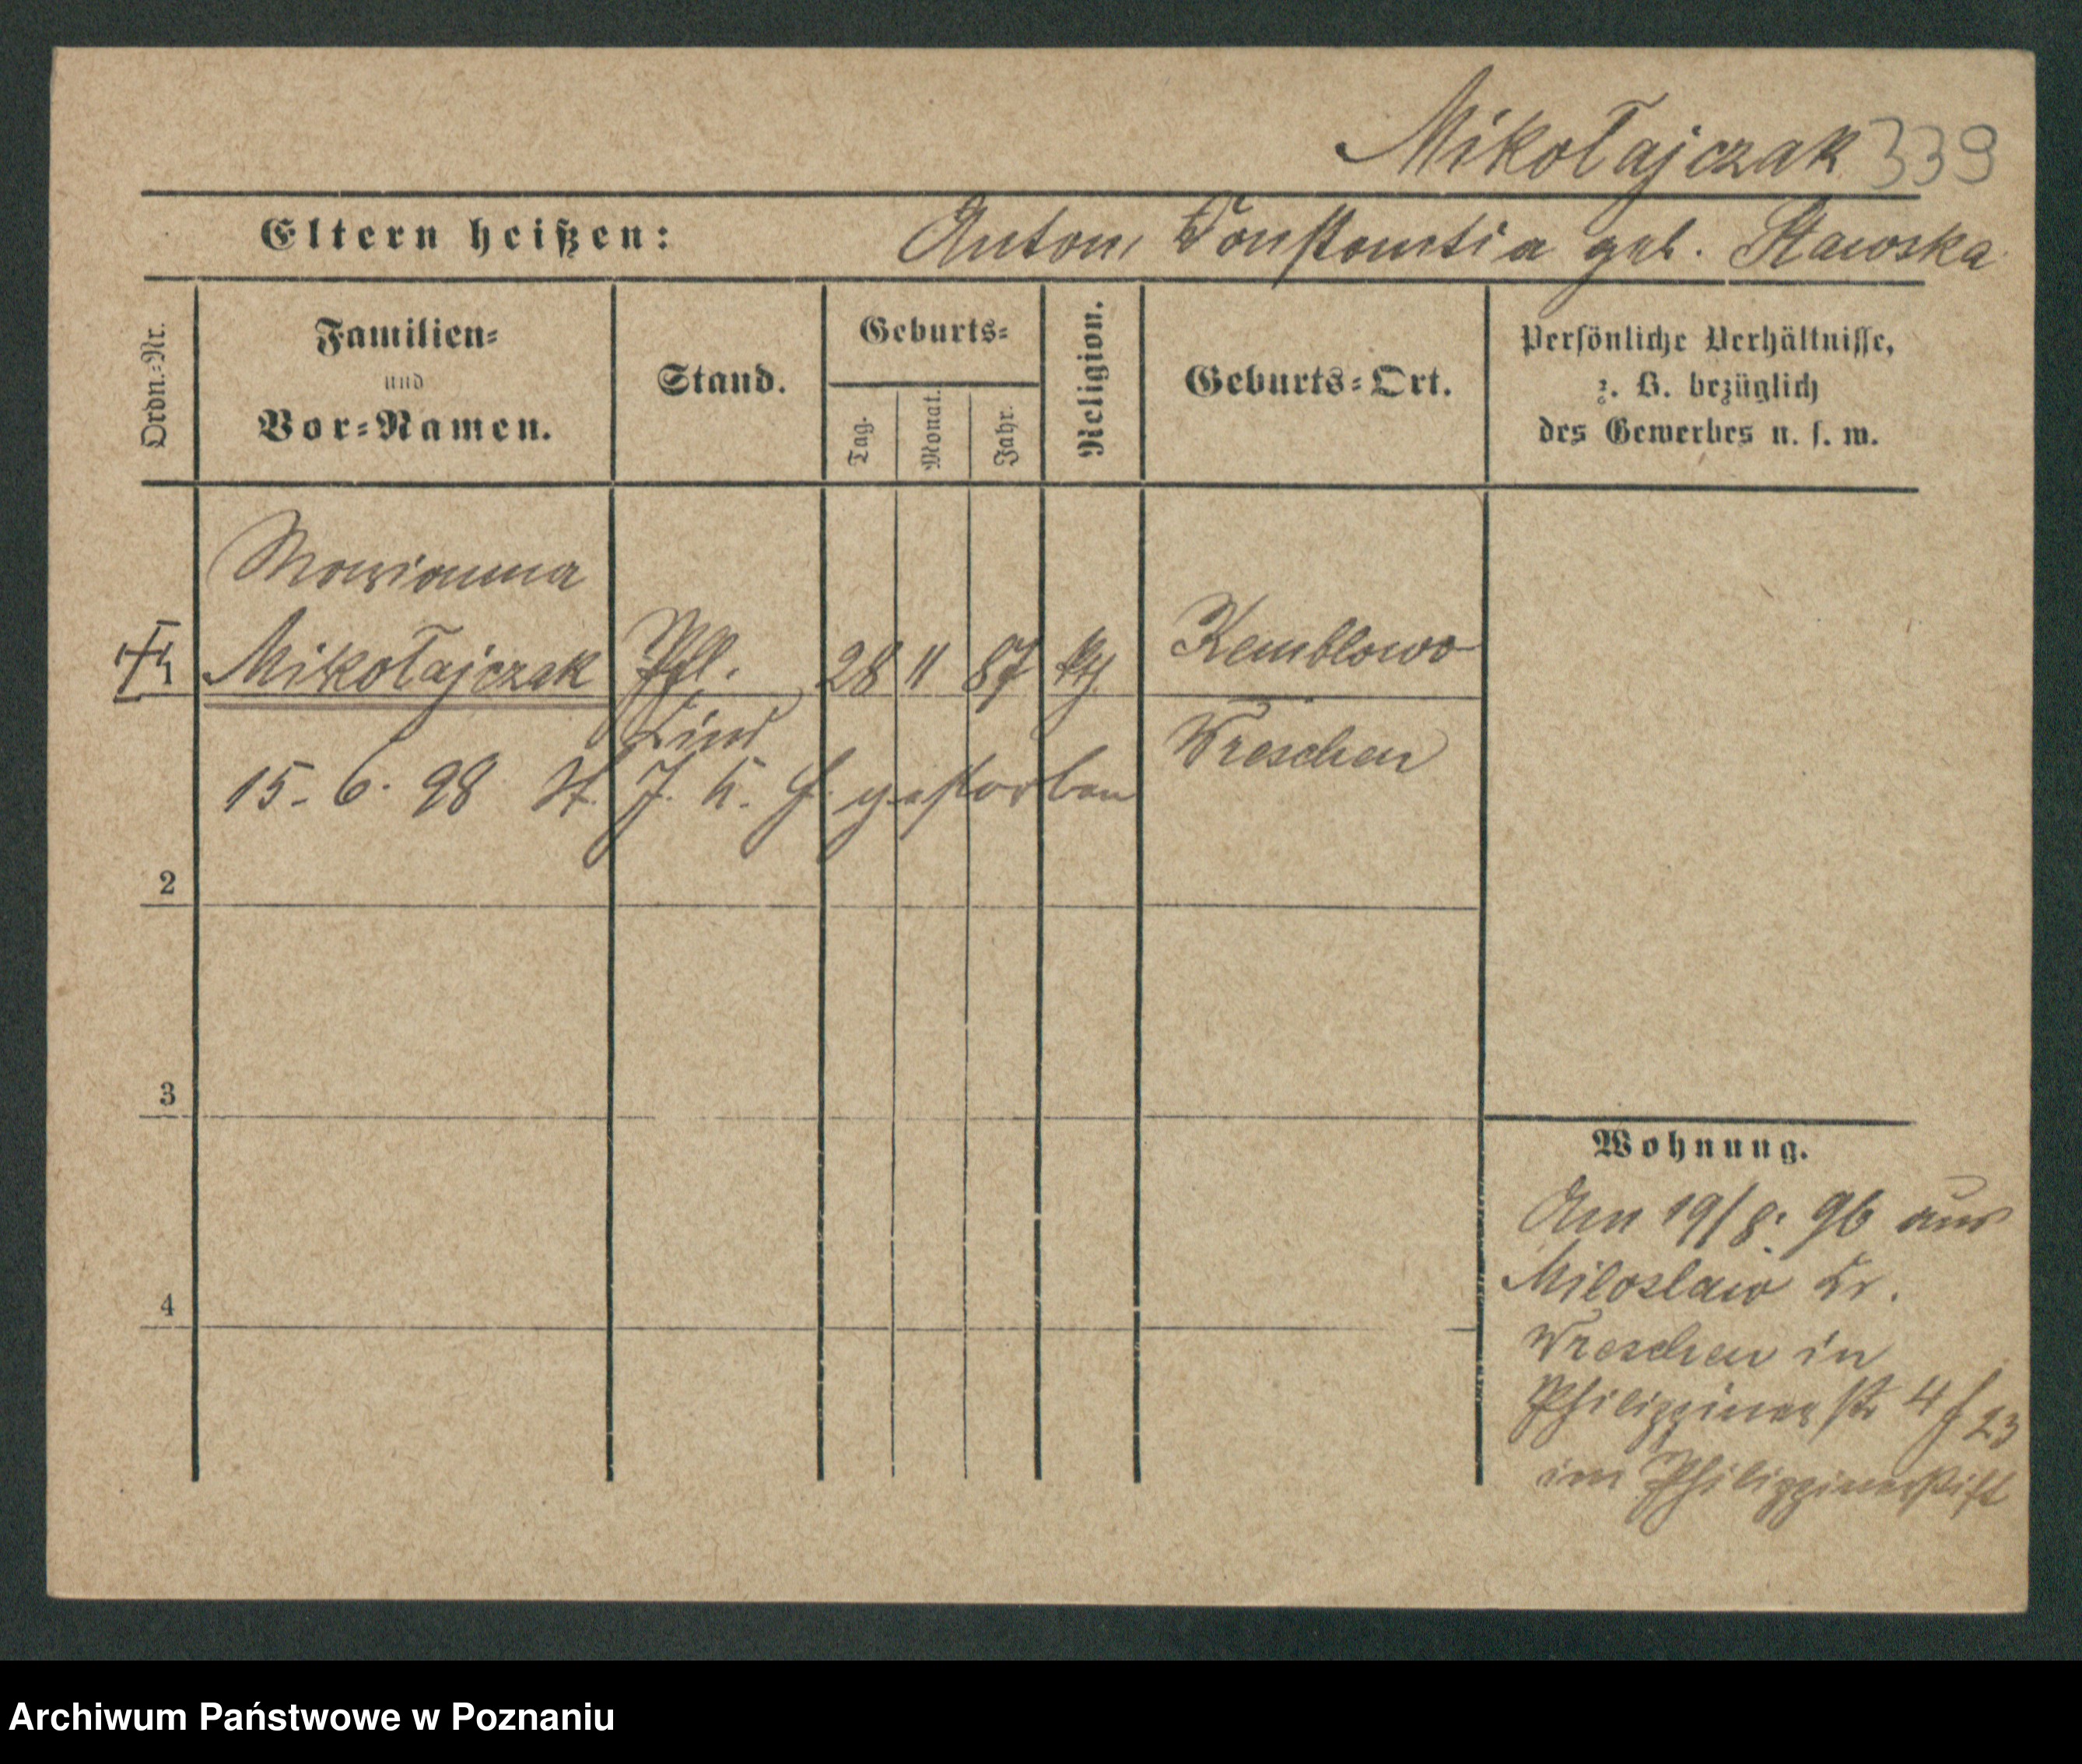 Mikołajczak 339
Eltern heißen: Anton, Konstantia geb. Stawska
Ordn.-Nr.
Familien-
und
Vor-Namen.
Stand.
Geburts-
Tag.
Monat.
Jahr.
Religion.
Geburts-Ort.
Persönliche Verhältnisse,
z. B. bezüglich
des Gewerbes u. s. w.
Marianna
Mikołajczak Pfl. 28 11 87 kth Kemblowo
Kind Wreschen
15. 6. 98 St. J. K. H. gestorben
2
3
4
Wohnung.
Am 19/8. 96 aus
Miloslaw Kr.
Wreschen in
Philippinenstr 4 f 23
im Philippinenstift
Archiwum Państwowe w Poznaniu